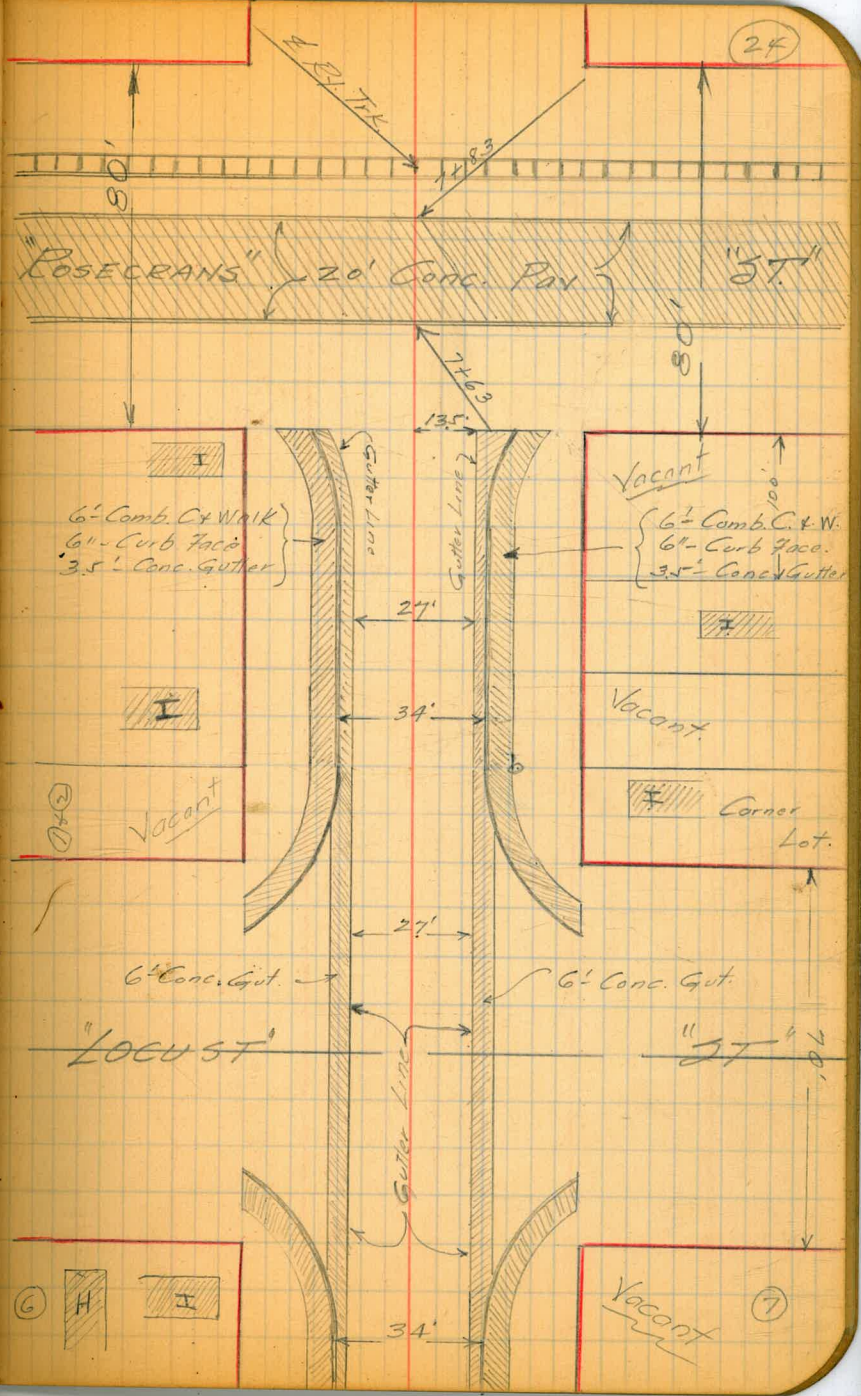 24
℄ Ry. Trk.
7+83
80'
"ROSECRANS" 20' Conc. Pav "ST."
80'
7+63
13.5'
Gutter Line
Gutter Line
I
Vacant
100'
6'- Comb. C & Walk
6"- Curb Face
3.5'- Conc. Gutter
6'- Comb. C. & W.
6"- Curb Face.
3.5'- Conc. Gutter
27'
I
I
34'
Vacant.
Vacant
I
Corner
Lot.
27'
6'- Conc. Gut.
6'- Conc. Gut.
"LOCUST" "ST"
70'
Gutter Line
6
H
I
Vacant
7
34'